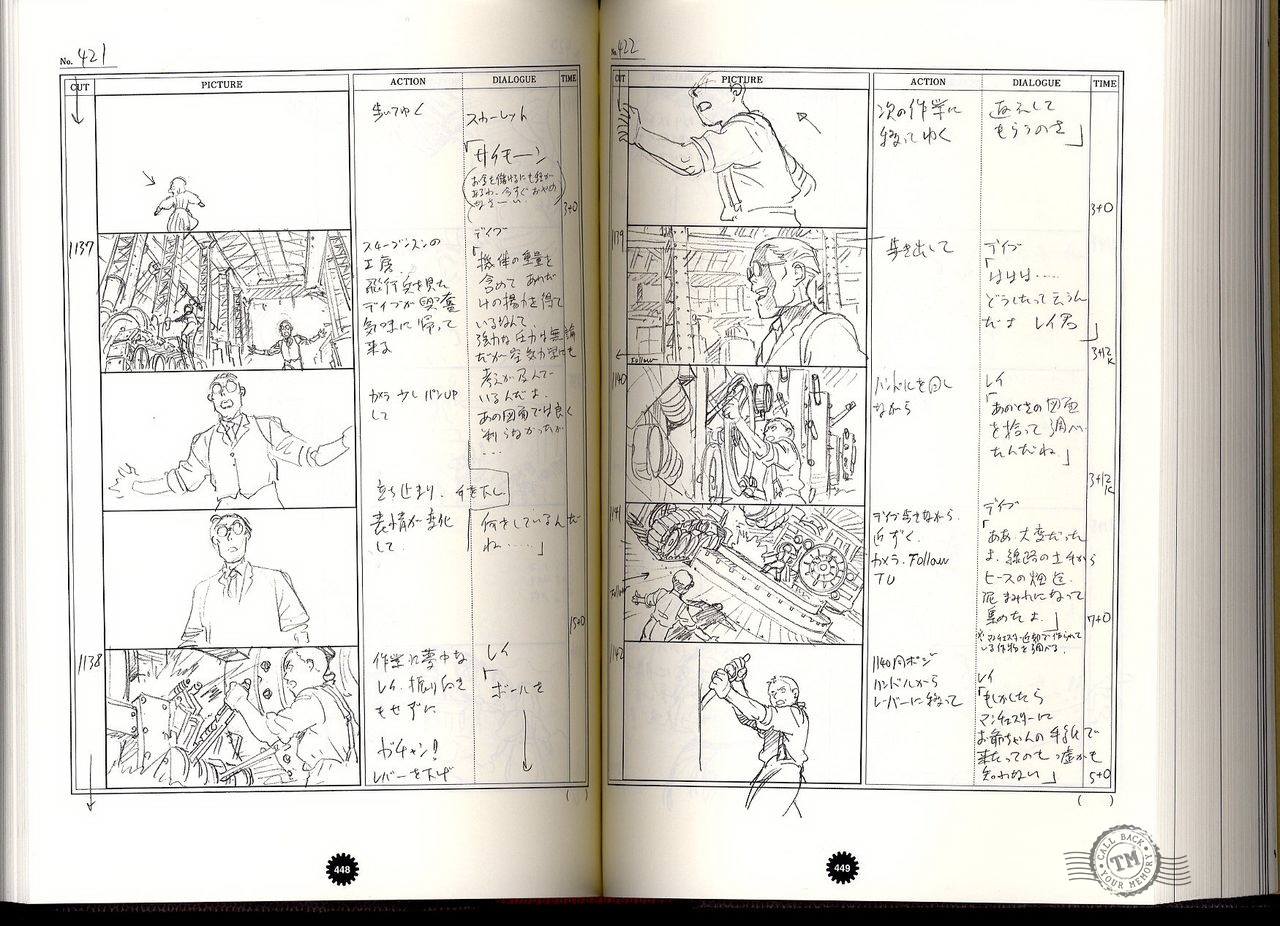 No. 421
CUT PICTURE ACTION DIALOGUE TIME
歩いてゆく
スカーレット
「サイモーン
3+0
1137
スチーブンスンの
工房
飛行穴を見た
デイブが興奮
気味に帰って
来る
デイブ
「機体の重量を
含めて あれだ
けの揚力を得て
いるなんて
強力な圧力は無論
だが空気力学も
考えが及んで
いるんだよ
あの図面では良く
判らなかったが
…
カメラ 少し パンUP
して
立ち止まり、手を下し
表情が変化
して
何をしているんだ
ね……」
15+0
1138
作業に夢中な
レイ、振り向き
もせずに
ガチャン!
レバーを下げ
レイ
「ボールを
448
No. 422
CUT PICTURE ACTION DIALOGUE TIME
次の作業に
移ってゆく
返して
もらうのさ」
3+0
1139
Follow
歩き出して
デイブ
「ははは……
どうしたって云うん
だよ レイ君」
3+12
K
1140
ハンドルを回し
ながら
レイ
「あのときの図面
を拾って調べ
たんだね」
3+12
K
1141
Follow
デイブ歩きながら
近ずく
カメラ. Follow
TU
デイブ
「ああ、大変だった
よ、線路の土手から
ピースの畑迄
泥まみれになって
集めたよ」
7+0
1142
1140同ポジ
ハンドルから
レバーに移って
レイ
「もしかしたら
マンチェスターに
お爺ちゃんの手紙で
来たってのも 嘘かも
知れない」
5+0
( )
( )
449
CALL BACK
TM
YOUR MEMORY